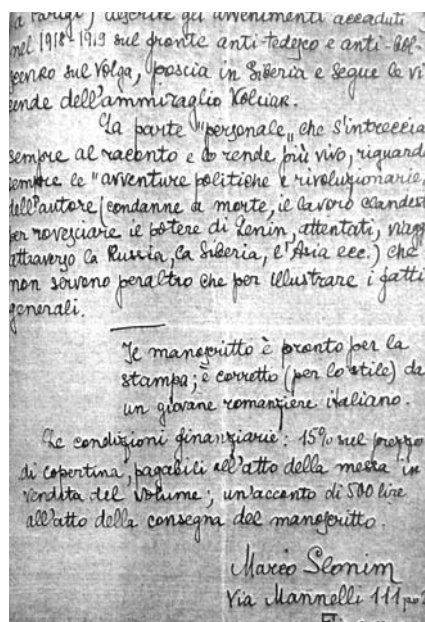 a Parigi) descrive gli avvenimenti accaduti
nel 1918-1919 sul fronte anti-tedesco e anti-bol-
scevico sul Volga, poscia in Siberia e segue le vi
ende dell'ammiraglio Kolciak.
La parte "personale" che s'intreccia
sempre al racconto e lo rende più vivo, riguard
sempre le "avventure politiche e rivoluzionarie"
dell'autore (condanne di morte, il lavoro clandest
per rovesciare il potere di Lenin, attentati, viagg
attraverso la Russia, la Siberia, l'Asia ecc.) che
non servono peraltro che per illustrare i fatti
generali.
Il manoscritto è pronto per la
stampa; è corretto (per lo stile) da
un giovane romanziere italiano.
Le condizioni finanziarie: 15% sul prezzo
di copertina, pagabili all'atto della messa in
vendita del volume; un'acconto di 500 lire
all'atto della consegna del manoscritto.
Marco Slonim
Via Mannelli 111 po